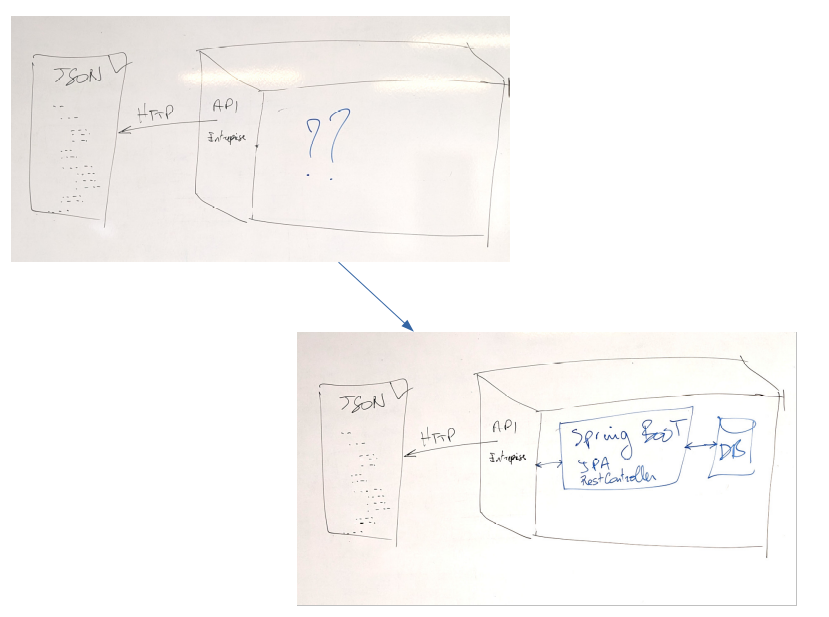 JSON
HTTP
API
Entreprise
??
JSON
HTTP
API
Entreprise
Spring BOOT
JPA
RestController
DB